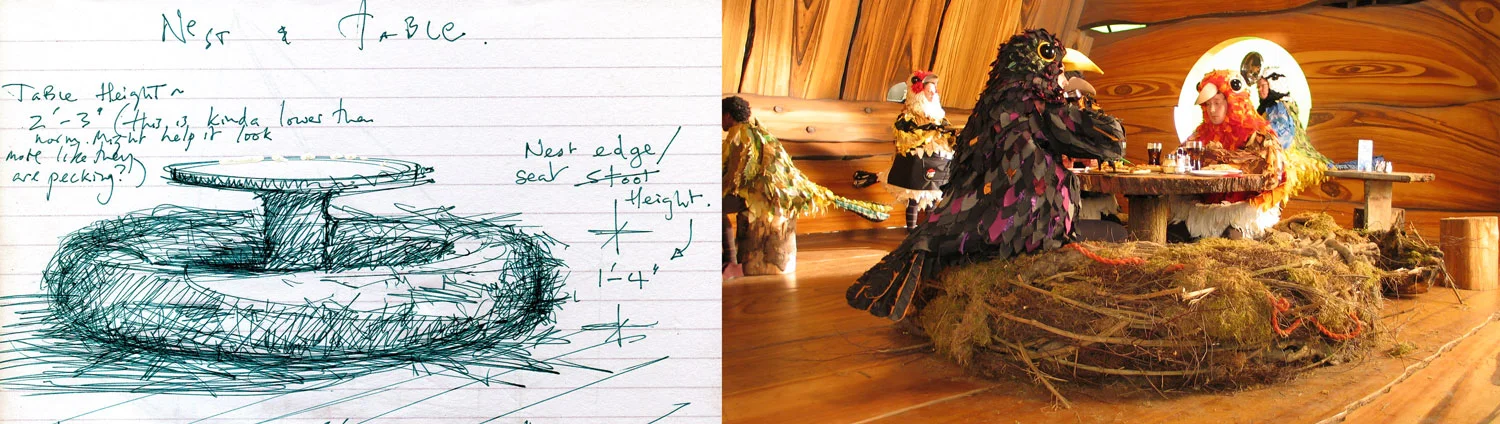 Nest & Table.
Table Height ~
2'-3" (this is kinda lower than
norm. Might help it look
more like they
are pecking?)
Nest edge/
seat stool
Height.
1'-4"